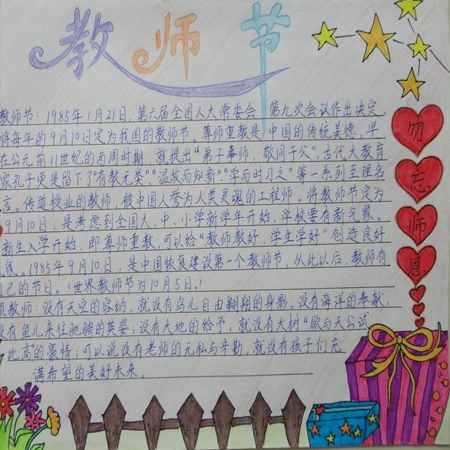 教师节
教师节：1985年1月21日，第六届全国人大常委会 第九次会议作出决定
将每年的9月10日定为我国的教师节。尊师重教是中国的传统美德，早
在公元前11世纪的西周时期，就提出“弟子事师，敬同于父”，古代大教育
家孔子更是留下了“有教无类”“温故而知新”“学而时习之”等一系列至理名
言。传道授业的教师，被中国人誉为人类灵魂的工程师。将教师节定为
9月10日，是考虑到全国大、中、小学新学年开始，学校要有新气象。
新生入学开始，即尊师重教，可以给“教师教好，学生学好”创造良好
气氛。1985年9月10日，是中国恢复建设第一个教师节，从此以后，教师有
自己的节日。（世界教师节为10月5日。）
教师：没有天空的容纳，就没有鸟儿自由翱翔的身影，没有海洋的奉献，
没有鱼儿来往驰梭的英姿；没有大地的给予，就没有大树“欲与天公试
比高”的豪情；可以说没有老师的无私与辛勤，就没有孩子们充
满希望的美好未来。
勿
忘
师
恩